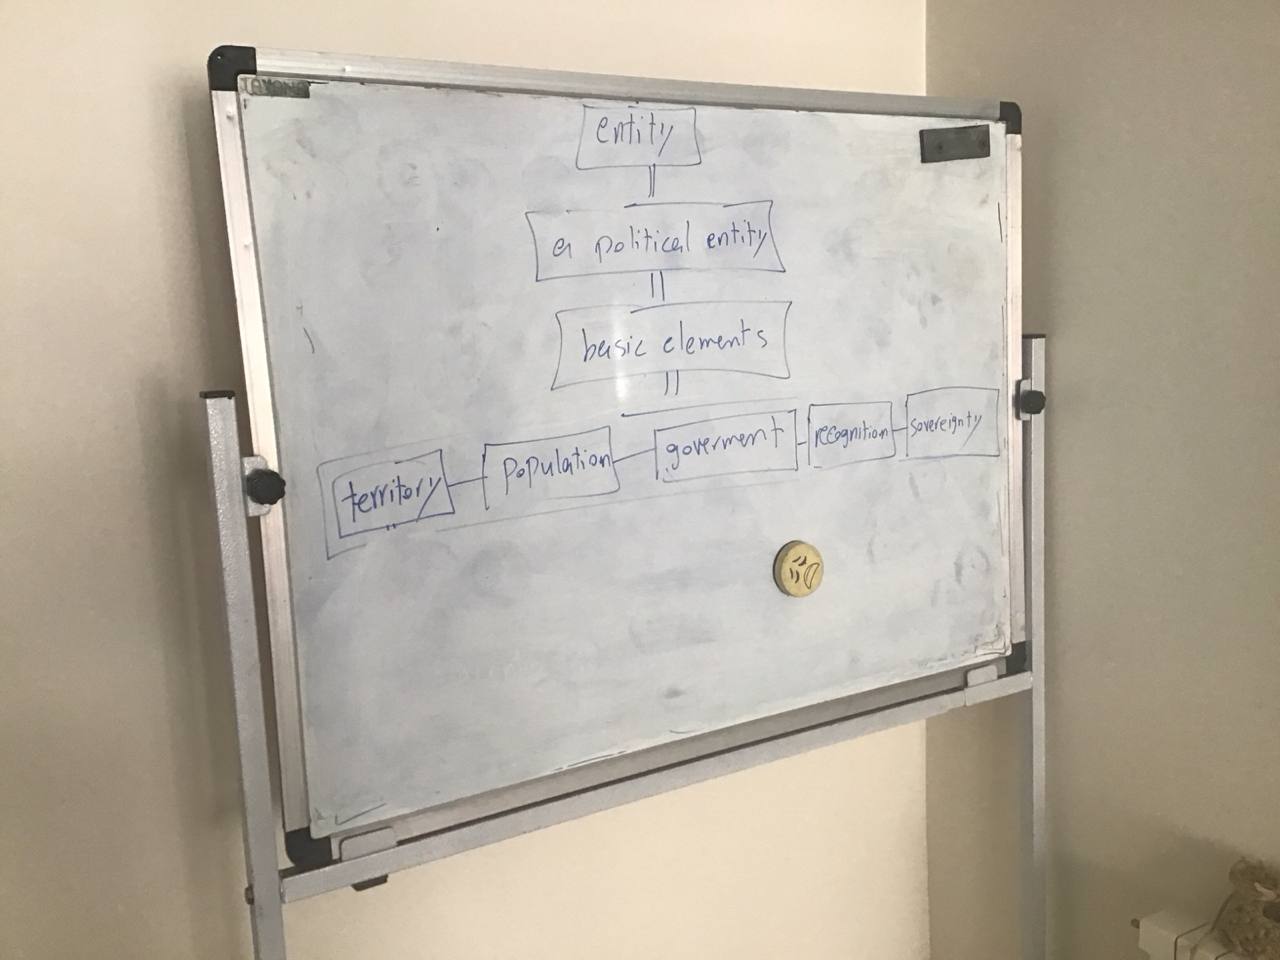 entity
a political entity
basic elements
territory population goverment recognition sovereignty